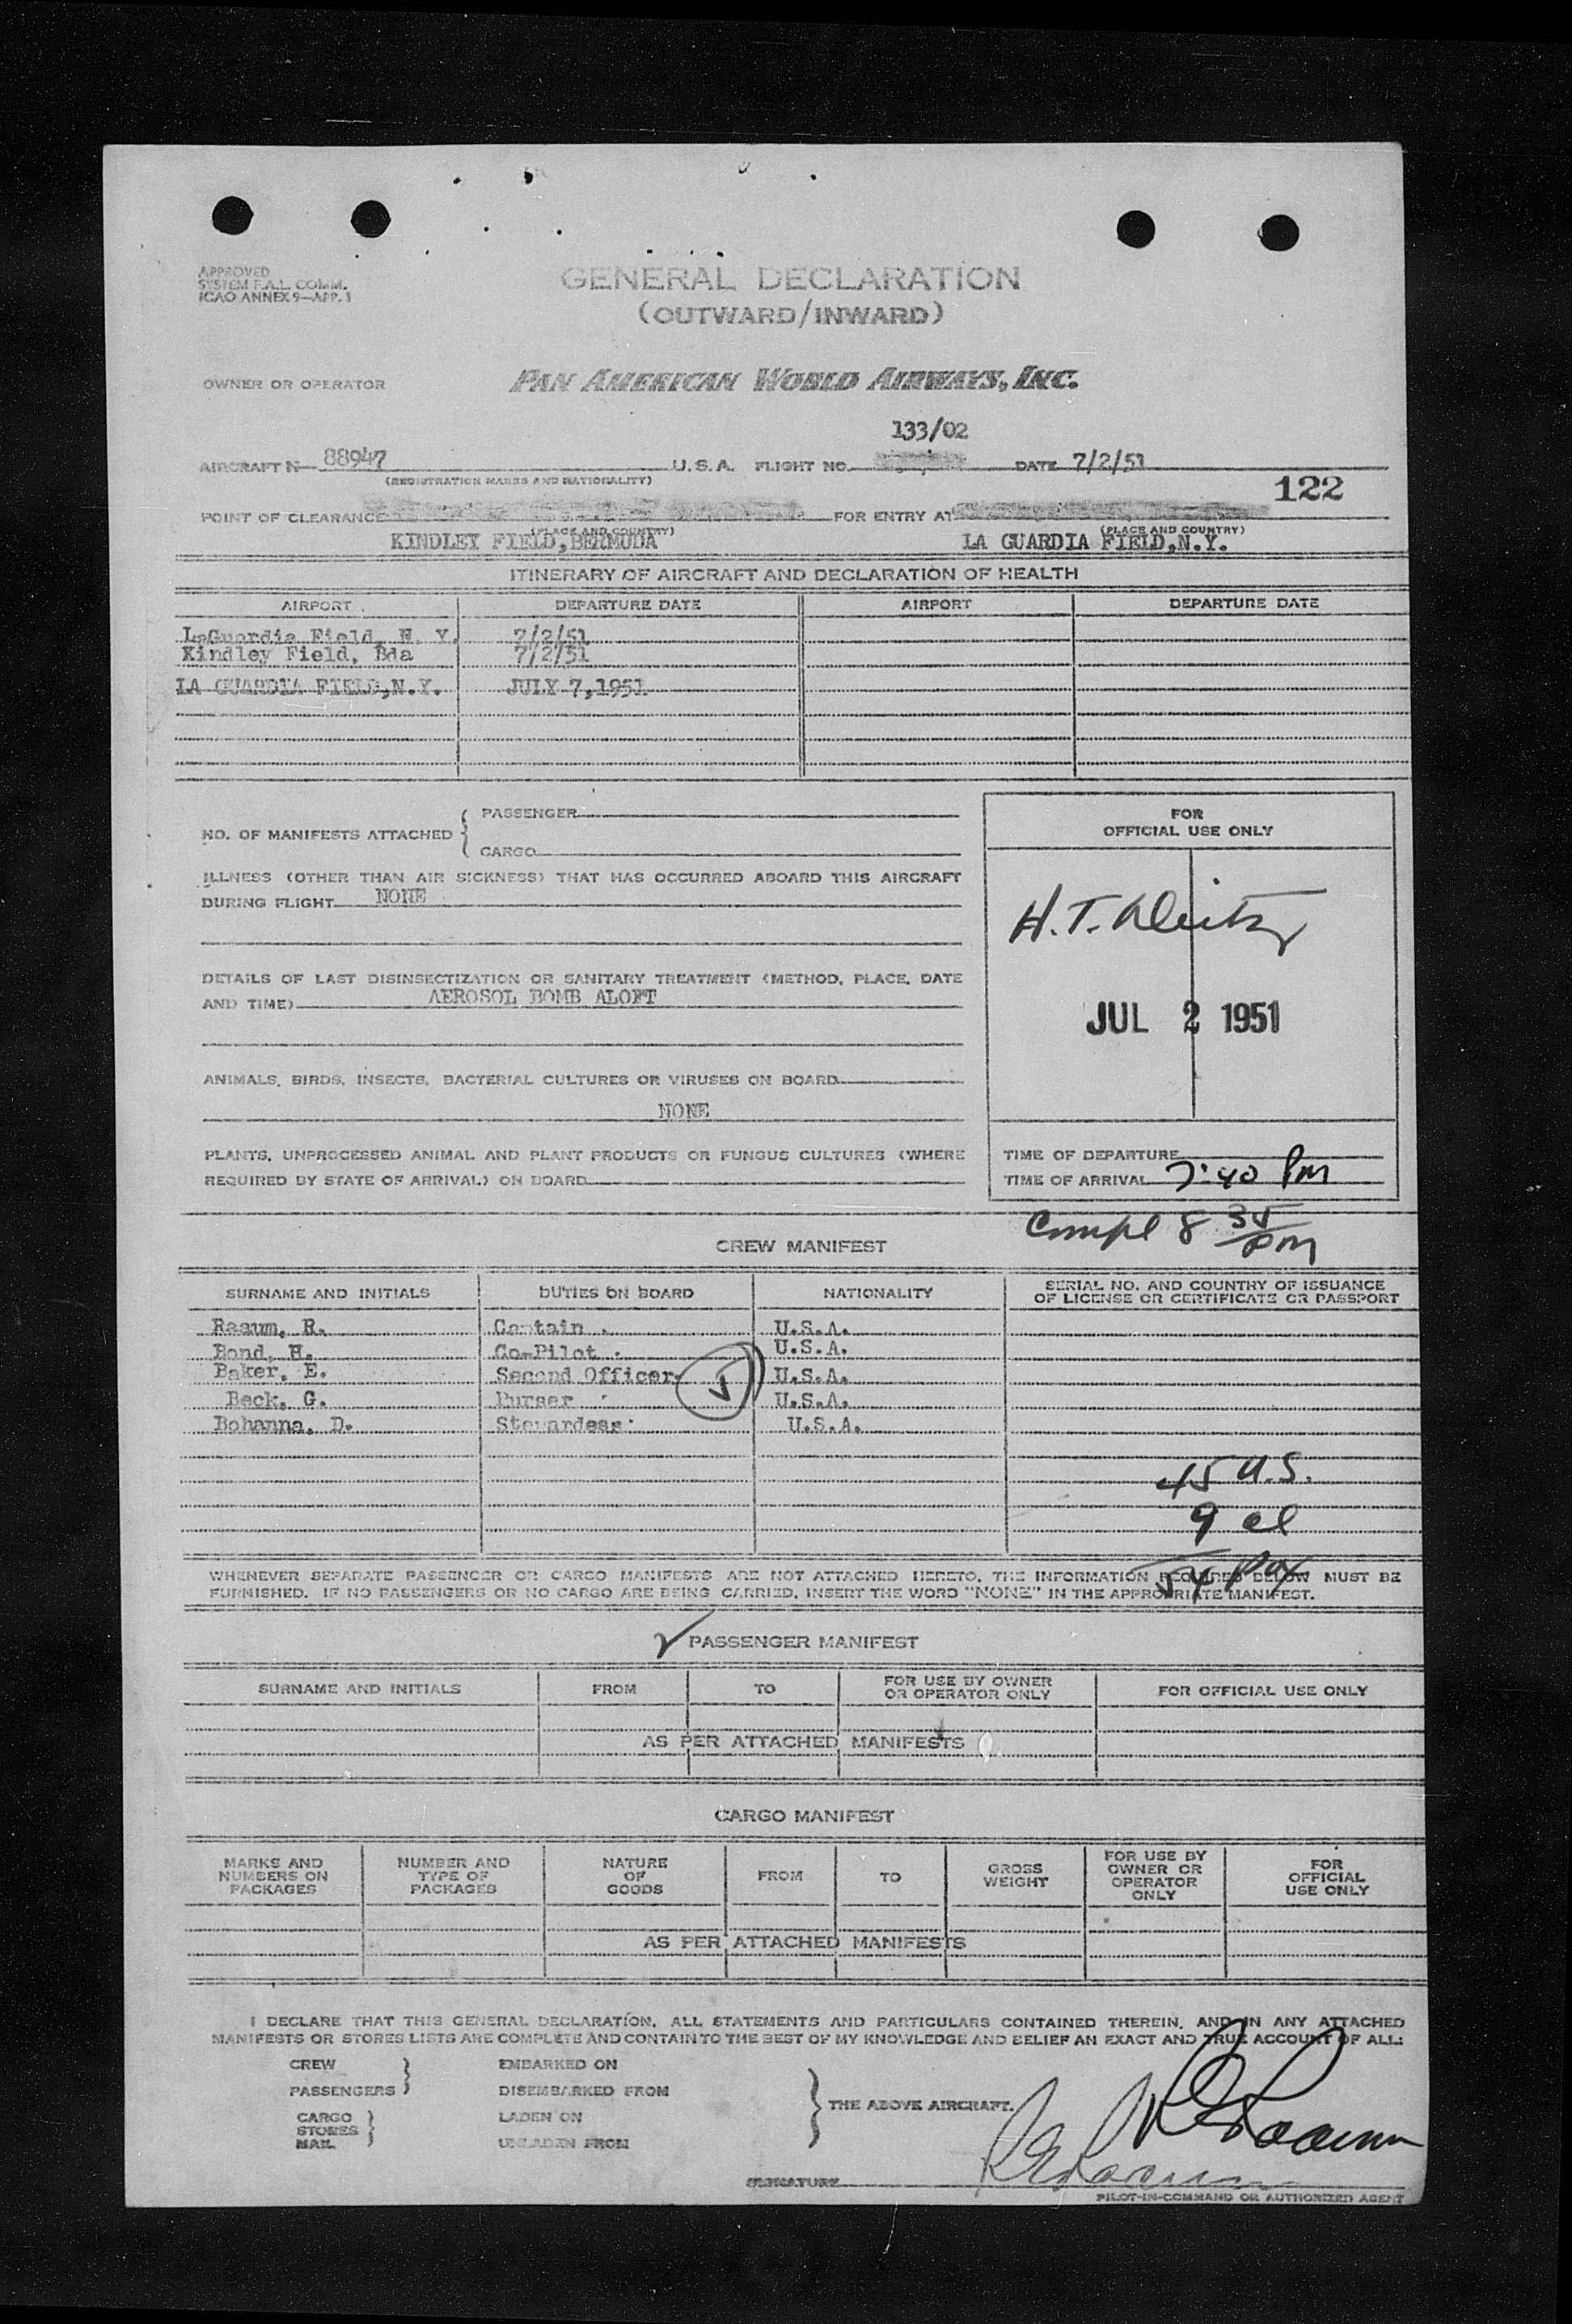 APPROVED
SYSTEM F.A.L. COMM.
ICAO ANNEX 9—APP. 1
GENERAL DECLARATION
(OUTWARD/INWARD)
OWNER OR OPERATOR PAN AMERICAN WORLD AIRWAYS, INC.
133/02
AIRCRAFT N— 88947 U.S.A. FLIGHT NO. DATE 7/2/51
(REGISTRATION MARKS AND NATIONALITY)
122
POINT OF CLEARANCE FOR ENTRY AT
(PLACE AND COUNTRY) (PLACE AND COUNTRY)
KINDLEY FIELD, BERMUDA LA GUARDIA FIELD, N.Y.
ITINERARY OF AIRCRAFT AND DECLARATION OF HEALTH
AIRPORT DEPARTURE DATE AIRPORT DEPARTURE DATE
LaGuardia Field, N. Y. 7/2/51
Kindley Field, Bda 7/2/51
LA GUARDIA FIELD, N.Y. JULY 7, 1951
NO. OF MANIFESTS ATTACHED { PASSENGER
CARGO
ILLNESS (OTHER THAN AIR SICKNESS) THAT HAS OCCURRED ABOARD THIS AIRCRAFT
DURING FLIGHT NONE
DETAILS OF LAST DISINSECTIZATION OR SANITARY TREATMENT (METHOD, PLACE, DATE
AND TIME) AEROSOL BOMB ALOFT
ANIMALS, BIRDS, INSECTS, BACTERIAL CULTURES OR VIRUSES ON BOARD
NONE
PLANTS, UNPROCESSED ANIMAL AND PLANT PRODUCTS OR FUNGUS CULTURES (WHERE
REQUIRED BY STATE OF ARRIVAL) ON BOARD
FOR
OFFICIAL USE ONLY
H. T.
JUL 2 1951
TIME OF DEPARTURE
TIME OF ARRIVAL 7:40 PM
Compl 8 35 PM
CREW MANIFEST
SURNAME AND INITIALS DUTIES ON BOARD NATIONALITY SERIAL NO. AND COUNTRY OF ISSUANCE
OF LICENSE OR CERTIFICATE OR PASSPORT
Raaum, R. Captain U.S.A.
Bond, H. Co-Pilot U.S.A.
Baker, E. Second Officer 5 U.S.A.
Beck, G. Purser U.S.A.
Bohanna, D. Stewardess U.S.A.
45 U.S.
9 al
54 Pax
WHENEVER SEPARATE PASSENGER OR CARGO MANIFESTS ARE NOT ATTACHED HERETO, THE INFORMATION REQUIRED BELOW MUST BE
FURNISHED. IF NO PASSENGERS OR NO CARGO ARE BEING CARRIED, INSERT THE WORD "NONE" IN THE APPROPRIATE MANIFEST.
PASSENGER MANIFEST
SURNAME AND INITIALS FROM TO FOR USE BY OWNER
OR OPERATOR ONLY FOR OFFICIAL USE ONLY
AS PER ATTACHED MANIFESTS
CARGO MANIFEST
MARKS AND
NUMBERS ON
PACKAGES NUMBER AND
TYPE OF
PACKAGES NATURE
OF
GOODS FROM TO GROSS
WEIGHT FOR USE BY
OWNER OR
OPERATOR
ONLY FOR
OFFICIAL
USE ONLY
AS PER ATTACHED MANIFESTS
I DECLARE THAT THIS GENERAL DECLARATION, ALL STATEMENTS AND PARTICULARS CONTAINED THEREIN, AND IN ANY ATTACHED
MANIFESTS OR STORES LISTS ARE COMPLETE AND CONTAIN TO THE BEST OF MY KNOWLEDGE AND BELIEF AN EXACT AND TRUE ACCOUNT OF ALL:
CREW EMBARKED ON
PASSENGERS DISEMBARKED FROM
THE ABOVE AIRCRAFT.
CARGO LADEN ON
STORES
MAIL UNLADEN FROM
R E Raaum
SIGNATURE R E Raaum
PILOT-IN-COMMAND OR AUTHORIZED AGENT